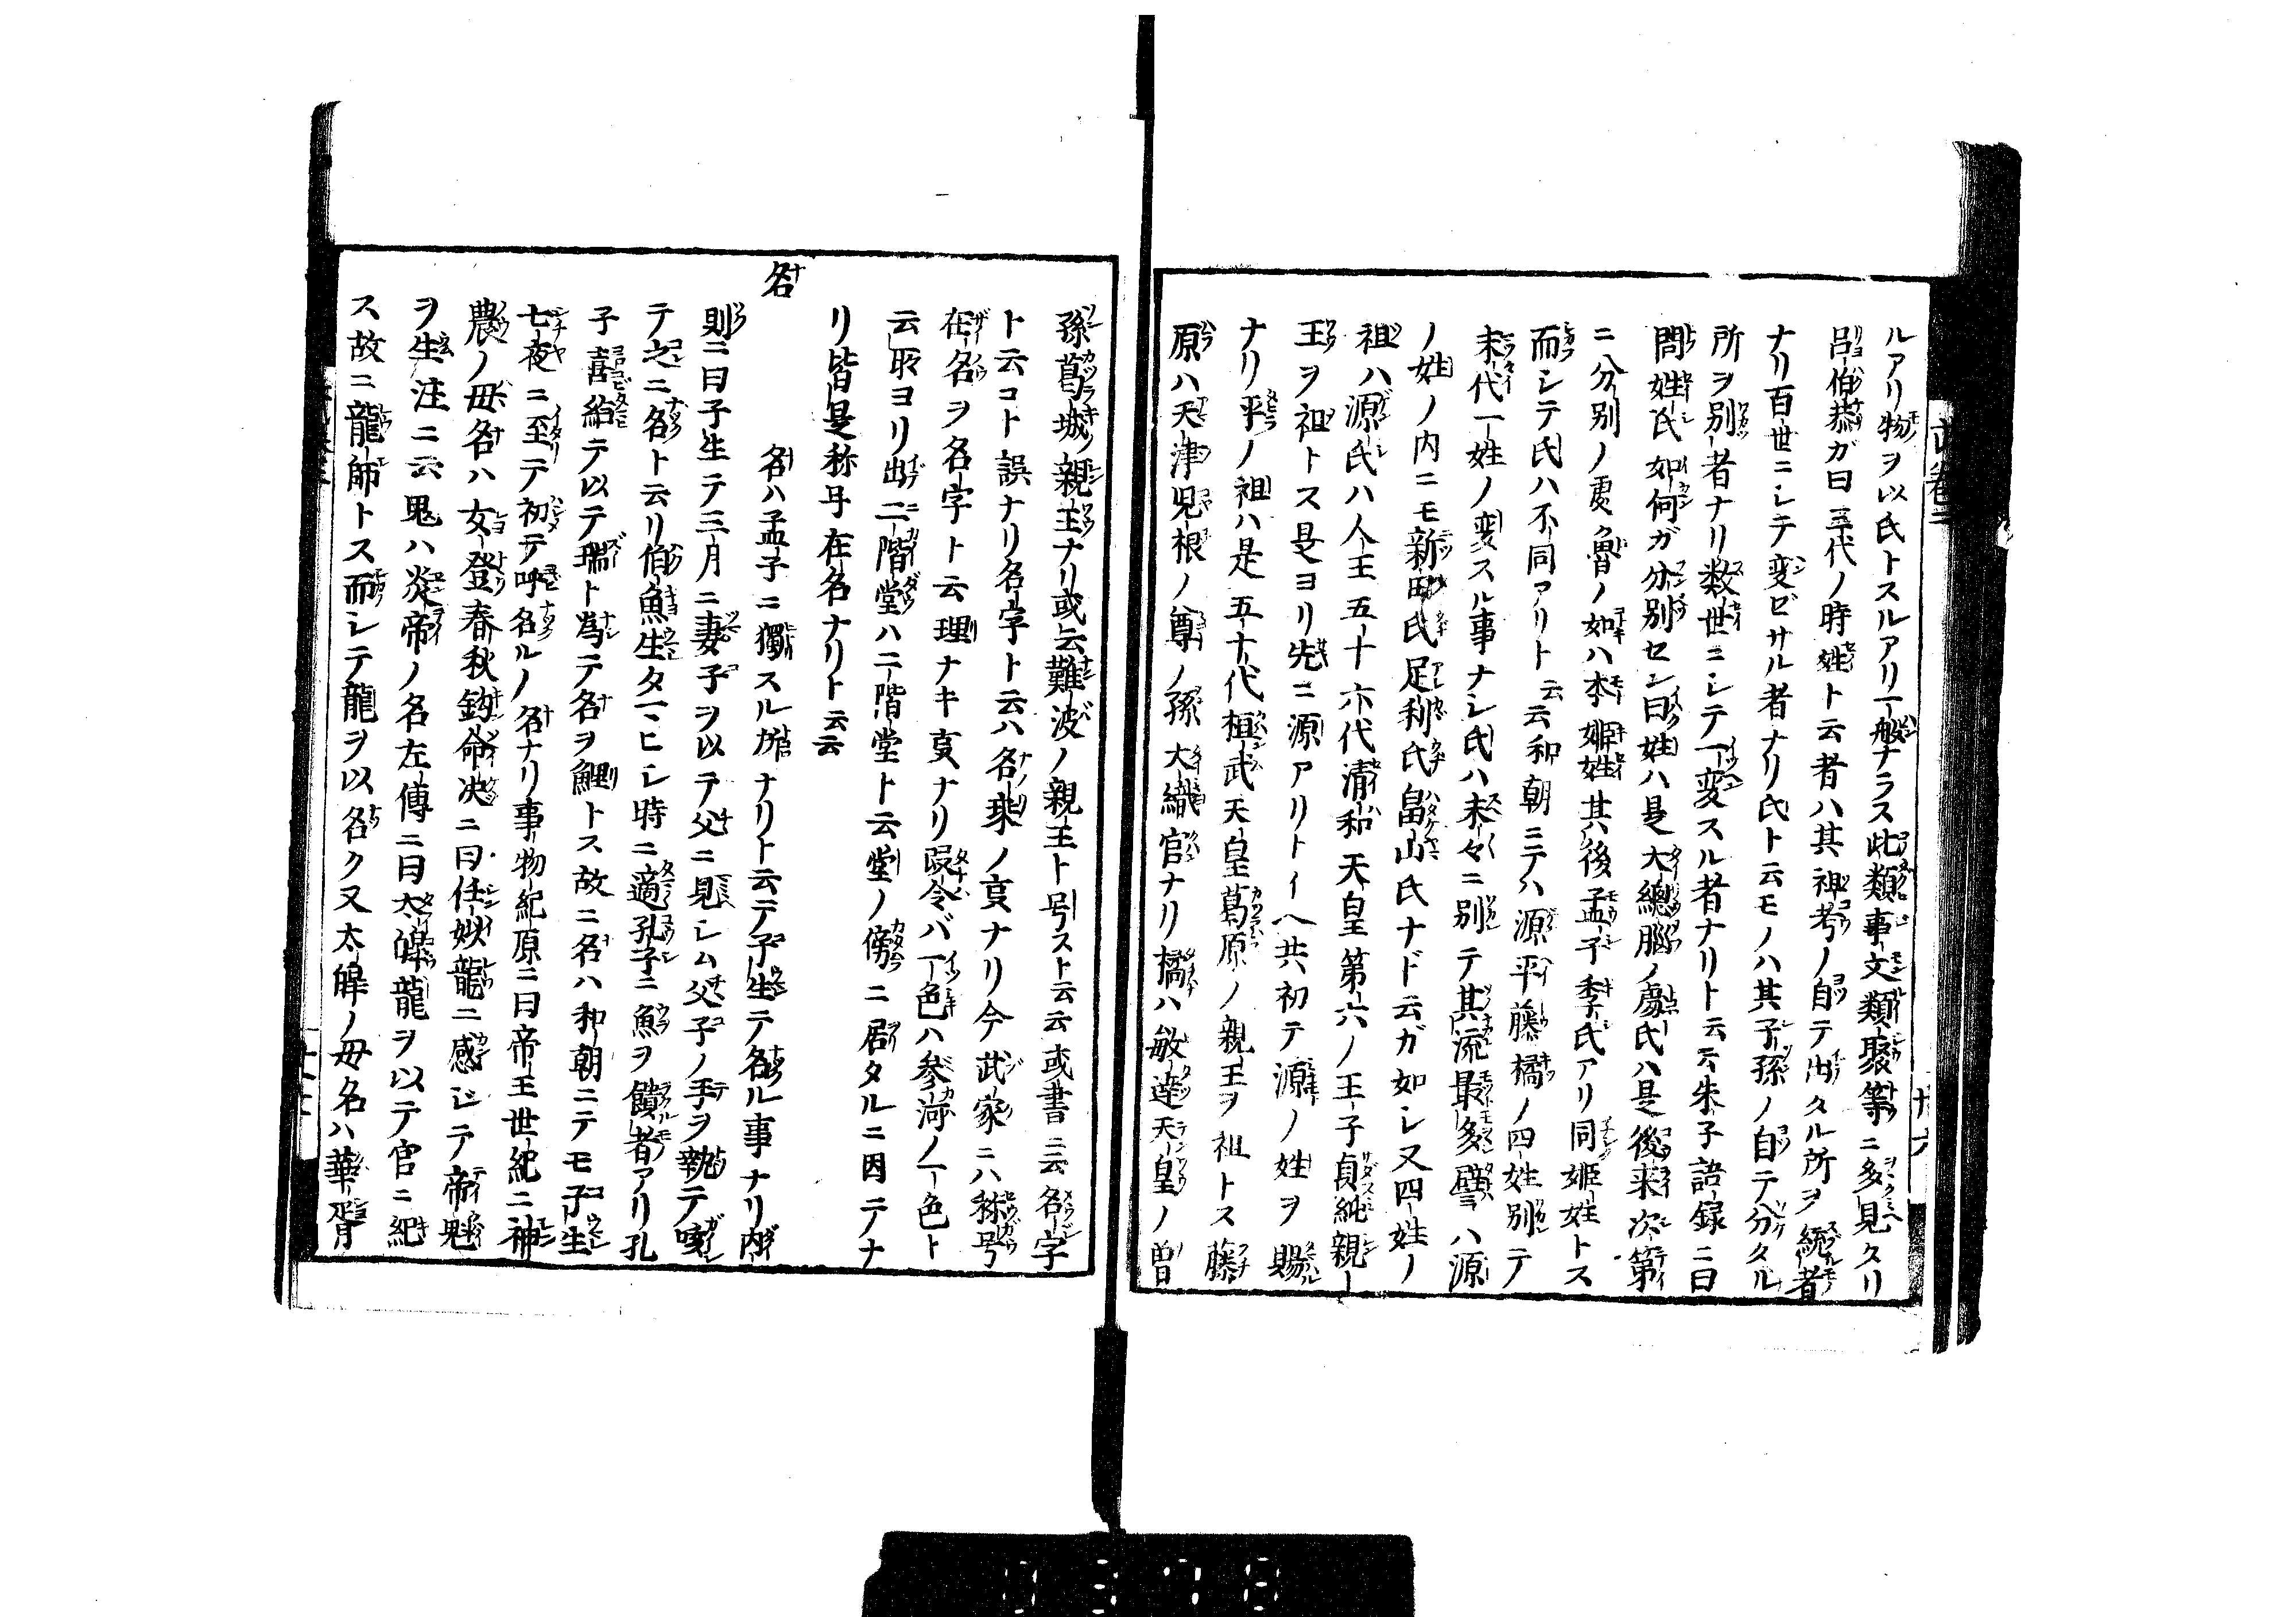 ルアリ物ヲ以氏トスルアリ一般ナラス此類事文類聚等ニ多見タリ
呂伯恭ガ曰三代ノ時姓ト云者ハ其祖考ノ自テ出タル所ヲ統者
ナリ百世ニシテ変ゼサル者ナリ氏ト云モノハ其子孫ノ自テ分タル
所ヲ別者ナリ数世ニシテ一変スル者ナリト云云朱子語録ニ曰
問姓氏如何ガ分別セン曰姓ハ是大總腦ノ處氏ハ是後来次第
ニ分別ノ處魯ノ如ハ本姫姓其後孟子季氏アリ同姫姓トス
而シテ氏ハ不同アリト云云和朝ニテハ源平藤橘ノ四姓別テ
末代一姓ノ変スル事ナシ氏ハ末々ニ別テ其流最多譬ハ源
ノ姓ノ内ニモ新田氏足利氏畠山氏ナドト云ガ如シ又四姓ノ
祖ハ源氏ハ人王五十六代清和天皇第六ノ王子貞純親
王ヲ祖トス是ヨリ先ニ源アリトイヘ共初テ源ノ姓ヲ賜
ナリ平ノ祖ハ是五十代桓武天皇葛原ノ親王ヲ祖トス藤
原ハ天津児根ノ尊ノ孫大織官ナリ橘ハ敏達天皇ノ曽
孫葛城ノ親王ナリ或云難波ノ親王ト号スト云云或書ニ云名字
ト云コト誤ナリ名字ト云ハ名乗ノ叓ナリ今武家ニハ称号
在名ヲ名字ト云理ナキ叓ナリ假令バ一色ハ参河ノ一色ト
云所ヨリ出二階堂ハ二階堂ト云堂ノ傍ニ居タルニ因テナ
リ皆是称号在名ナリト云云
名
名ハ孟子ニ獨スル所ナリト云テ子生テ名ル事ナリ内
則ニ曰子生テ三月ニ妻子ヲ以テ父ニ見シム父子ノ手ヲ執テ咳
テ之ニ名ト云リ伯魚生タマヒシ時ニ適孔子ニ魚ヲ饋者アリ孔
子喜給テ以テ瑞ト為テ名ヲ鯉トス故ニ名ハ和朝ニテモ子生
七夜ニ至テ初テ呼名ルノ名ナリ事物紀原ニ曰帝王世紀ニ神
農ノ母名ハ女登春秋鈎命决ニ曰任姒龍ニ感ジテ帝魁
ヲ生注ニ云鬼ハ炎帝ノ名左傳ニ曰大皥龍ヲ以テ官ニ紀
ス故ニ龍師トス而シテ龍ヲ以名ク又太皥ノ母名ハ華胥